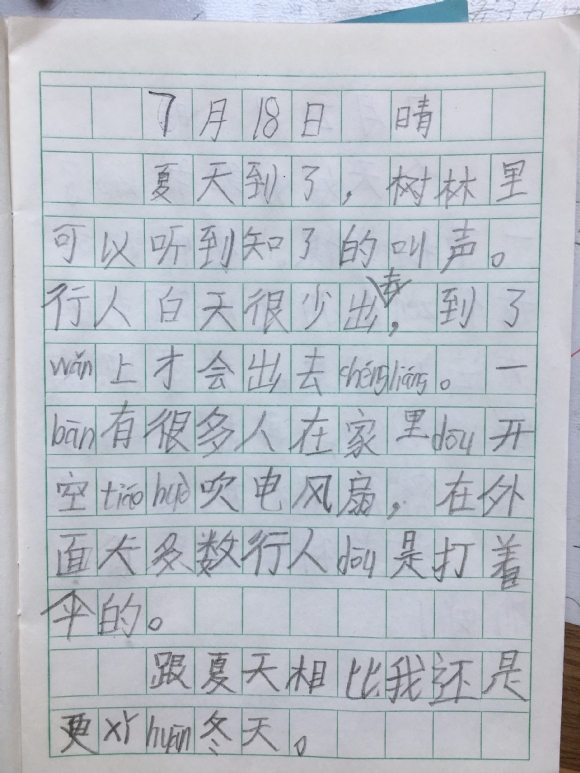 7月18日 晴
夏天到了，树林里
可以听到知了的叫声。
行人白天很少出去，到了
wǎn上才会出去chéngliáng。一
bān有很多人在家里dōu开
空tiáo huò吹电风扇，在外
面大多数行人dōu是打着
伞的。
跟夏天相比我还是
更xǐ huān冬天。